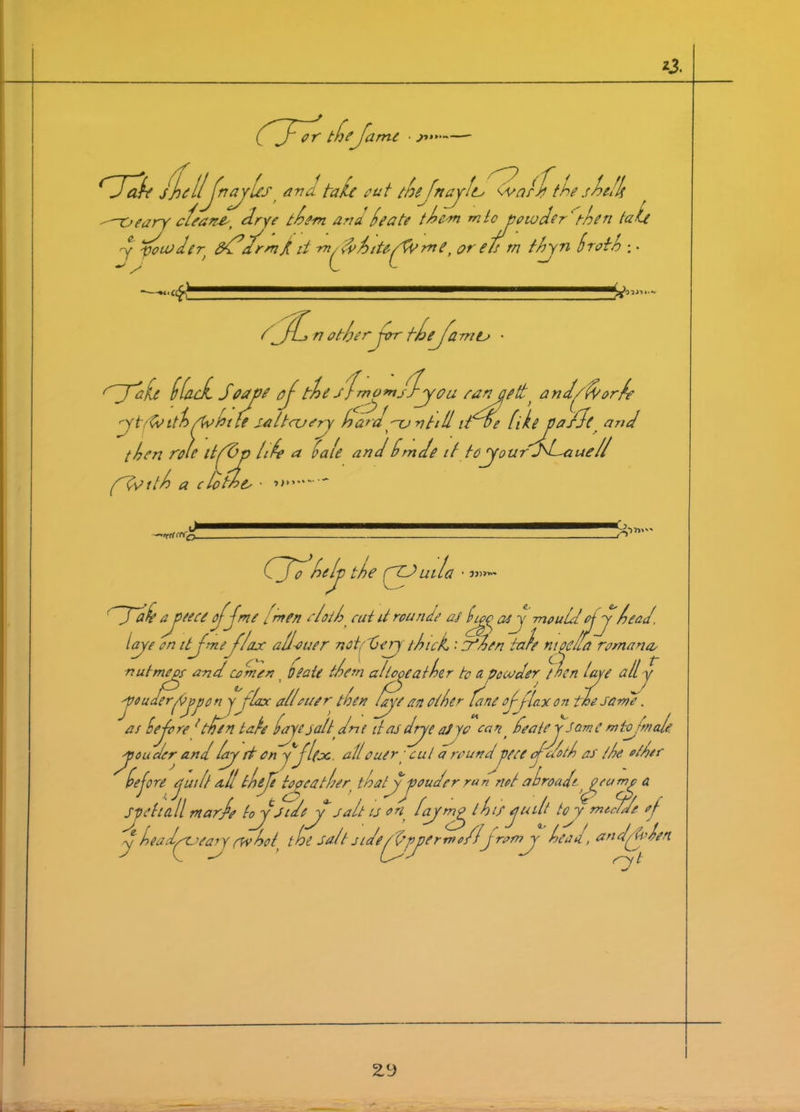 23.
For the same
Take shell snayles, and take out the snayls wash the shells
veary cleane, drye them and beate them into powder then take
yᵉ powder, & drink it in white wine, or els in thyn broth :
An other for the same
Take black Soape of the strongest you can gett, and worke
yt with white salt very hard vntill it be like paste, and
then role it vp like a bale and binde it to your Nauell
with a clothe
To help the Uuila
Take a peece of fine linen cloth, cut it rounde as bigg as yᵉ mould of yᵉ head,
laye on it fine flax all ouer not very thick : then take nigella romana
nutmegs and comen, beate them altogeather to a powder then laye all yᵉ
pouder vppon yᵉ flax all ouer then laye an other lane of flax on the same.
as before, then take baye salt drie it as drye as yo can, beate yᵉ same into smale
pouder and lay it on yᵉ flex. all ouer cut a round pece of cloth as the other
before quilt all these togeather that yᵉ pouder run not abroade, geuing a
speciall marke to yᵉ side yᵉ salt is on, laying this quilt to yᵉ meddle of
yᵉ head veary whot, the salt side vppermost from yᵉ head, and when
yt
29